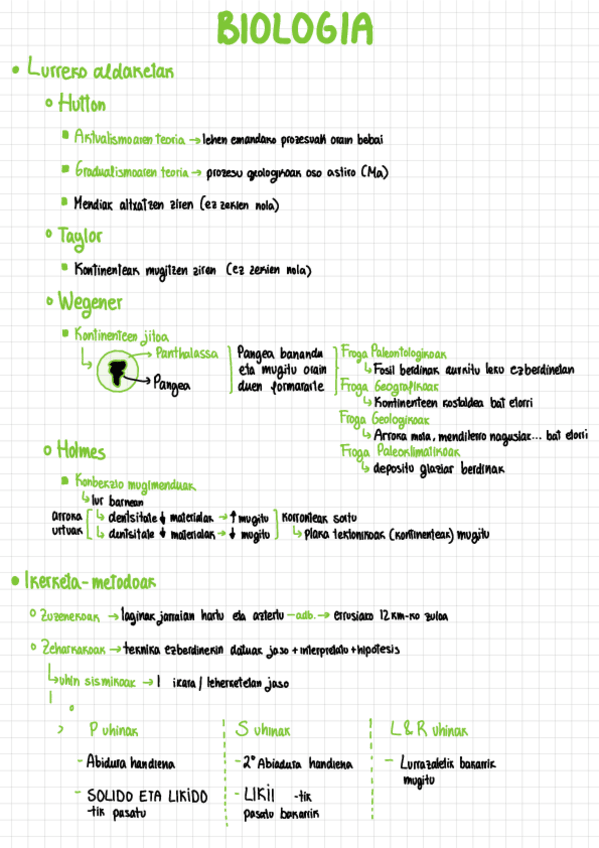 BIOLOGIA
• Lurreko aldaketak
Hutton
Aktualismoaren teoria → lehen emandako prozesuak orain bebai
Gradualismoaren teoria → prozesu geologikoak oso astiro (Ma)
Mendiak altxatzen ziren (ez zekien nola)
Taylor
Kontinenteak mugitzen ziren (ez zekien nola)
Wegener
Kontinenteen jitoa
Panthalassa
Pangea
Pangea banandu
eta mugitu orain
duen formararte
Froga Paleontologikoak
↳ Fosil berdinak aurkitu leku ezberdinetan
Froga Geografikoak
↳ Kontinenteen kostaldea bat etorri
Froga Geologikoak
↳ Arroka mota, mendilerro nagusiak... bat etorri
Froga Paleoklimatikoak
↳ deposito glaziar berdinak
Holmes
Konbekzio mugimenduak
↳ lur barnean
arroka
urtuak
↳ dentsitate ↓ materialak → ↑ mugitu
↳ dentsitate ↓ materialak → ↓ mugitu
korronteak sortu
↳ plaka tektonikoak (kontinenteak) mugitu
• Ikerketa-metodoak
Zuzenekoak → laginak jarraian hartu eta aztertu —adb.→ errusiako 12 km-ko zuloa
Zeharkakoak → teknika ezberdinekin datuak jaso + interpretatu + hipotesis
↳ uhin sismikoak → 1 ikara / leherketetan jaso
P uhinak
- Abidura handiena
- SOLIDO ETA LIKIDO
-tik pasatu
S uhinak
- 2º Abiadura handiena
- LIKII -tik
pasatu bakarrik
L&R uhinak
- Lurrazaletik bakarrik
mugitu